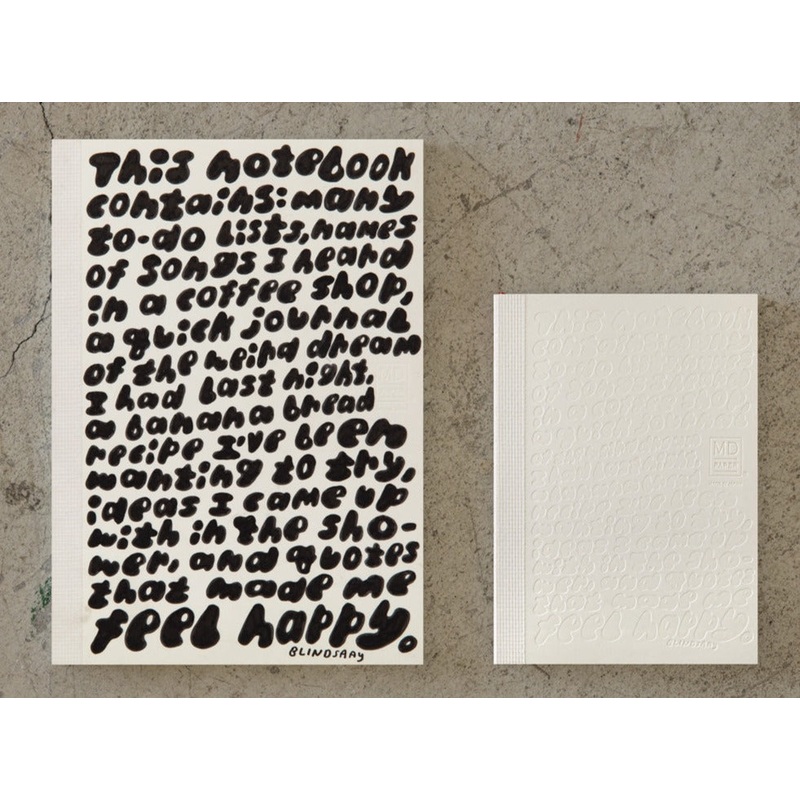 This notebook
contains: many
to-do lists, names
of songs I heard
in a coffee shop,
a quick journal
of the weird dream
I had last night,
a banana bread
recipe I've been
wanting to try,
ideas I came up
with in the sho-
wer, and quotes
that made me
feel happy.
BLINDSAAY
THIS notebook
feel happy.
BLINDSAAY
MD
PAPER